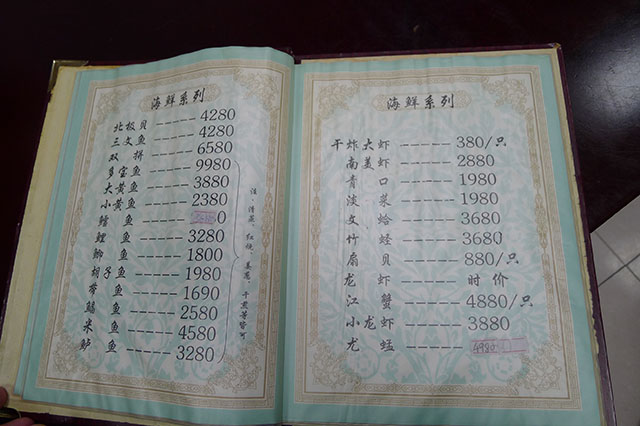 海鲜系列
北极贝-----4280
三文鱼-----4280
双拼-----6580
多宝鱼-----9980
大黄鱼-----3880
小黄鱼-----2380
鱼-----0
鲤鱼-----3280
鲫鱼-----1800
胡子鱼-----1980
带鱼-----1690
鳊鱼-----2580
米鱼-----4580
鲈鱼-----3280
注:清蒸、红烧、姜葱、干煎等皆可
海鲜系列
干炸大虾-----380/只
南美虾-----2880
青口-----1980
淡菜-----1980
文蛤-----3680
竹蛏-----3680
扇贝-----880/只
龙虾-----时价
江蟹-----4880/只
小龙虾-----3880
龙蜢-----4980